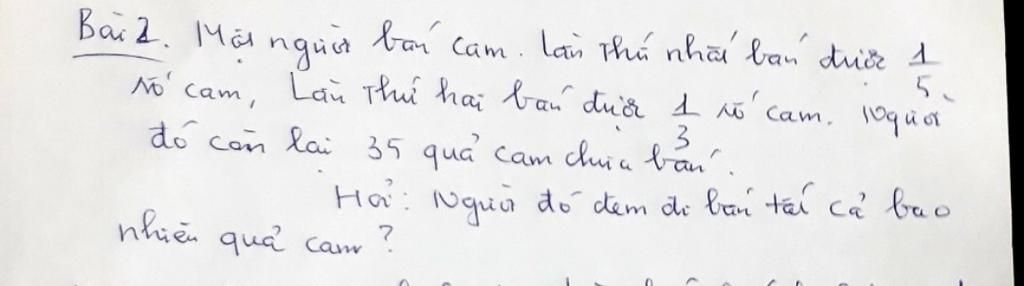 Bài 2. Một người bán cam. Lần thứ nhất bán được 1/5
số cam, Lần thứ hai bán được 1/3 số cam. Người
đó còn lại 35 quả cam chưa bán.
Hỏi: Người đó đem đi bán tất cả bao
nhiêu quả cam?